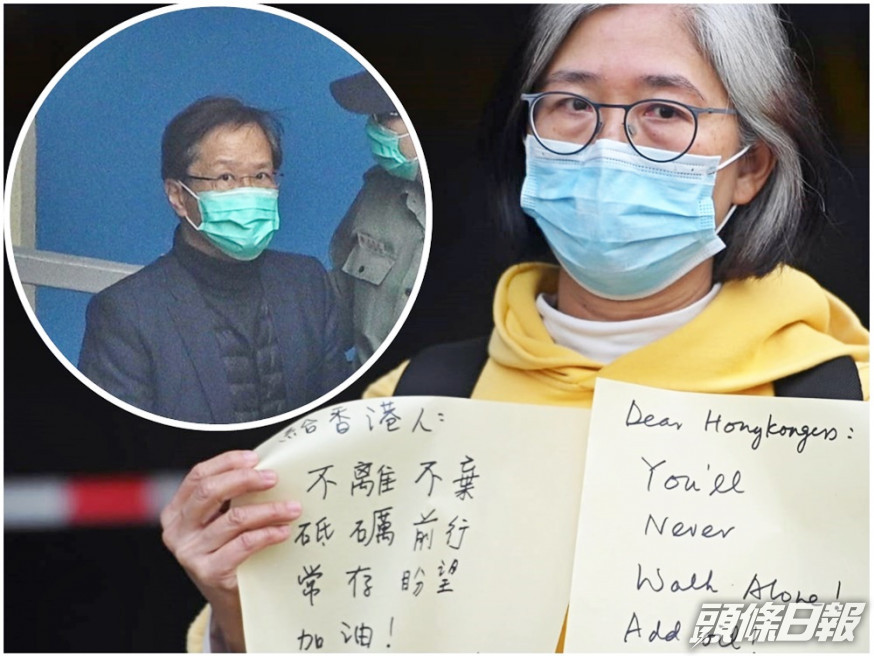 給香港人：
不離不棄
砥礪前行
常存盼望
加油！
Dear Hongkongers:
You'll
Never
Walk Alone!
Add oil!
頭條日報